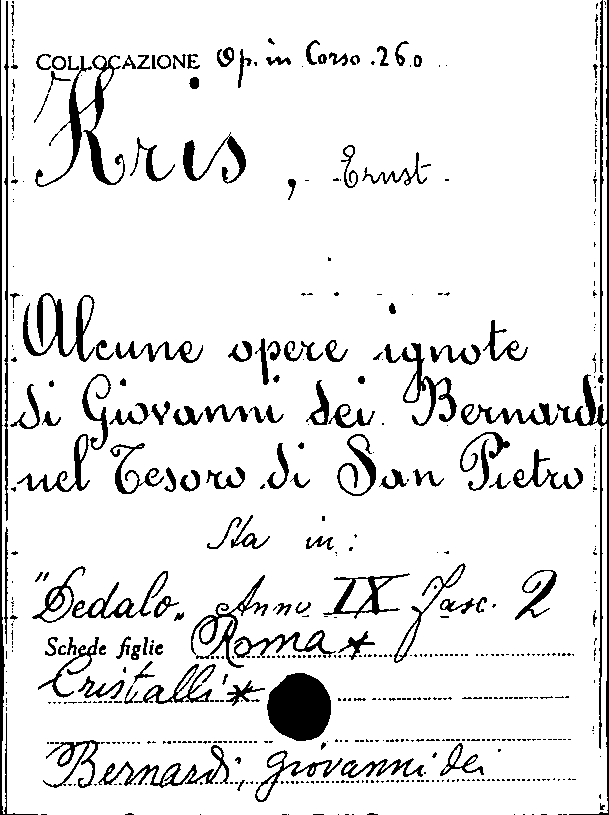 COLLOCAZIONE Op. in Corso .260
Kris, Ernst
Alcune opere ignote
di Giovanni dei Bernardi
nel Tesoro di San Pietro
Sta in:
"Dedalo„ Anno IX Fasc. 2
Schede figlie Roma *
Cristalli *
Bernardi, Giovanni dei